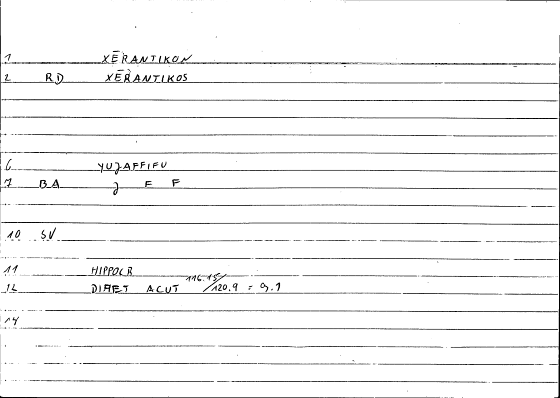 1 XĒRANTIKON
2 RD XĒRANTIKOS
6 YUJAFFIFU
7 BA J F F
10 SV
11 HIPPOCR
12 DIAET ACUT 116.15/120.9 = 9.1
14